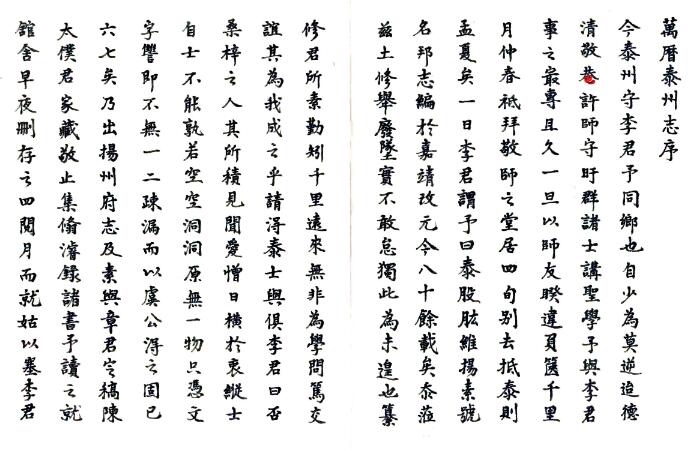 萬曆泰州志序
今泰州守李君予同鄉也自少為莫逆迨德
清敬菴許師守盱群諸士講聖學予與李君
事之最專且久一旦以師友睽違負篋千里
月仲春袛拜敬師之堂居四旬别去抵泰則
孟夏矣一日李君謂予曰泰股肱維揚素號
名邦志編於嘉靖改元今八十餘載矣忝蒞
兹土修舉廢墜實不敢怠獨此為未遑也纂
修君所素勤矧千里遠來無非為學問篤交
誼其為我成之乎請得泰士與俱李君曰否
桑梓之人其所積見聞愛憎日橫於衷縱士
自士不能孰若空空洞洞原無一物只憑文
字讐即不無一二疎漏而以虞公得之固已
六七矣乃出揚州府志及素與章君定稿陳
太僕君家藏敬止集偹濬錄諸書予讀之就
舘舍早夜刪存之四閱月而就姑以塞李君